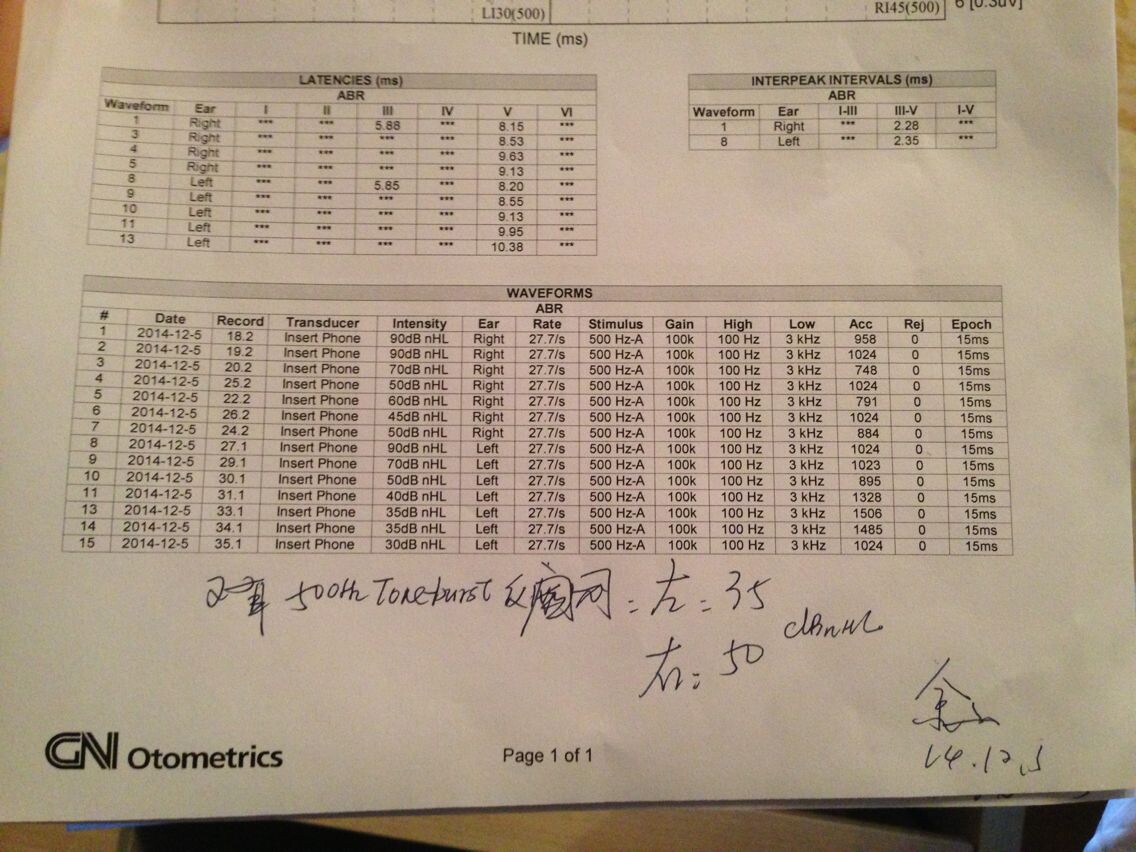 LI30(500)
RI45(500)
6 [0.3uV]
TIME (ms)
LATENCIES (ms)
ABR
Waveform Ear I II III IV V VI
1 Right *** *** 5.88 *** 8.15 ***
3 Right *** *** *** *** 8.53 ***
4 Right *** *** *** *** 9.63 ***
5 Right *** *** *** *** 9.13 ***
8 Left *** *** 5.85 *** 8.20 ***
9 Left *** *** *** *** 8.55 ***
10 Left *** *** *** *** 9.13 ***
11 Left *** *** *** *** 9.95 ***
13 Left *** *** *** *** 10.38 ***
INTERPEAK INTERVALS (ms)
ABR
Waveform Ear I-III III-V I-V
1 Right *** 2.28 ***
8 Left *** 2.35 ***
WAVEFORMS
ABR
# Date Record Transducer Intensity Ear Rate Stimulus Gain High Low Acc Rej Epoch
1 2014-12-5 18.2 Insert Phone 90dB nHL Right 27.7/s 500 Hz-A 100k 100 Hz 3 kHz 958 0 15ms
2 2014-12-5 19.2 Insert Phone 90dB nHL Right 27.7/s 500 Hz-A 100k 100 Hz 3 kHz 1024 0 15ms
3 2014-12-5 20.2 Insert Phone 70dB nHL Right 27.7/s 500 Hz-A 100k 100 Hz 3 kHz 748 0 15ms
4 2014-12-5 25.2 Insert Phone 50dB nHL Right 27.7/s 500 Hz-A 100k 100 Hz 3 kHz 1024 0 15ms
5 2014-12-5 22.2 Insert Phone 60dB nHL Right 27.7/s 500 Hz-A 100k 100 Hz 3 kHz 791 0 15ms
6 2014-12-5 26.2 Insert Phone 45dB nHL Right 27.7/s 500 Hz-A 100k 100 Hz 3 kHz 1024 0 15ms
7 2014-12-5 24.2 Insert Phone 50dB nHL Right 27.7/s 500 Hz-A 100k 100 Hz 3 kHz 884 0 15ms
8 2014-12-5 27.1 Insert Phone 90dB nHL Left 27.7/s 500 Hz-A 100k 100 Hz 3 kHz 1024 0 15ms
9 2014-12-5 29.1 Insert Phone 70dB nHL Left 27.7/s 500 Hz-A 100k 100 Hz 3 kHz 1023 0 15ms
10 2014-12-5 30.1 Insert Phone 50dB nHL Left 27.7/s 500 Hz-A 100k 100 Hz 3 kHz 895 0 15ms
11 2014-12-5 31.1 Insert Phone 40dB nHL Left 27.7/s 500 Hz-A 100k 100 Hz 3 kHz 1328 0 15ms
13 2014-12-5 33.1 Insert Phone 35dB nHL Left 27.7/s 500 Hz-A 100k 100 Hz 3 kHz 1506 0 15ms
14 2014-12-5 34.1 Insert Phone 35dB nHL Left 27.7/s 500 Hz-A 100k 100 Hz 3 kHz 1485 0 15ms
15 2014-12-5 35.1 Insert Phone 30dB nHL Left 27.7/s 500 Hz-A 100k 100 Hz 3 kHz 1024 0 15ms
500Hz Toneburst 反 阈 : 左: 35
dBnHL
右: 50
14.12.5
GN Otometrics
Page 1 of 1